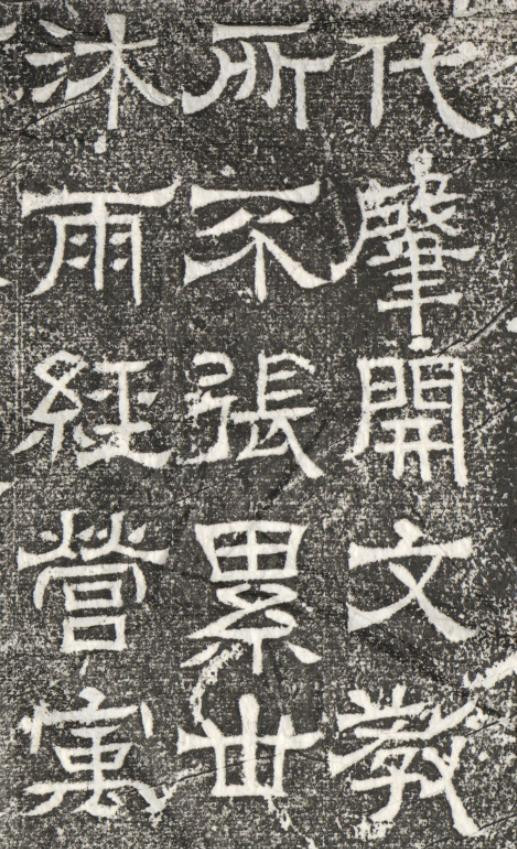 代肈開文教
所不張累世
沐雨經營寓